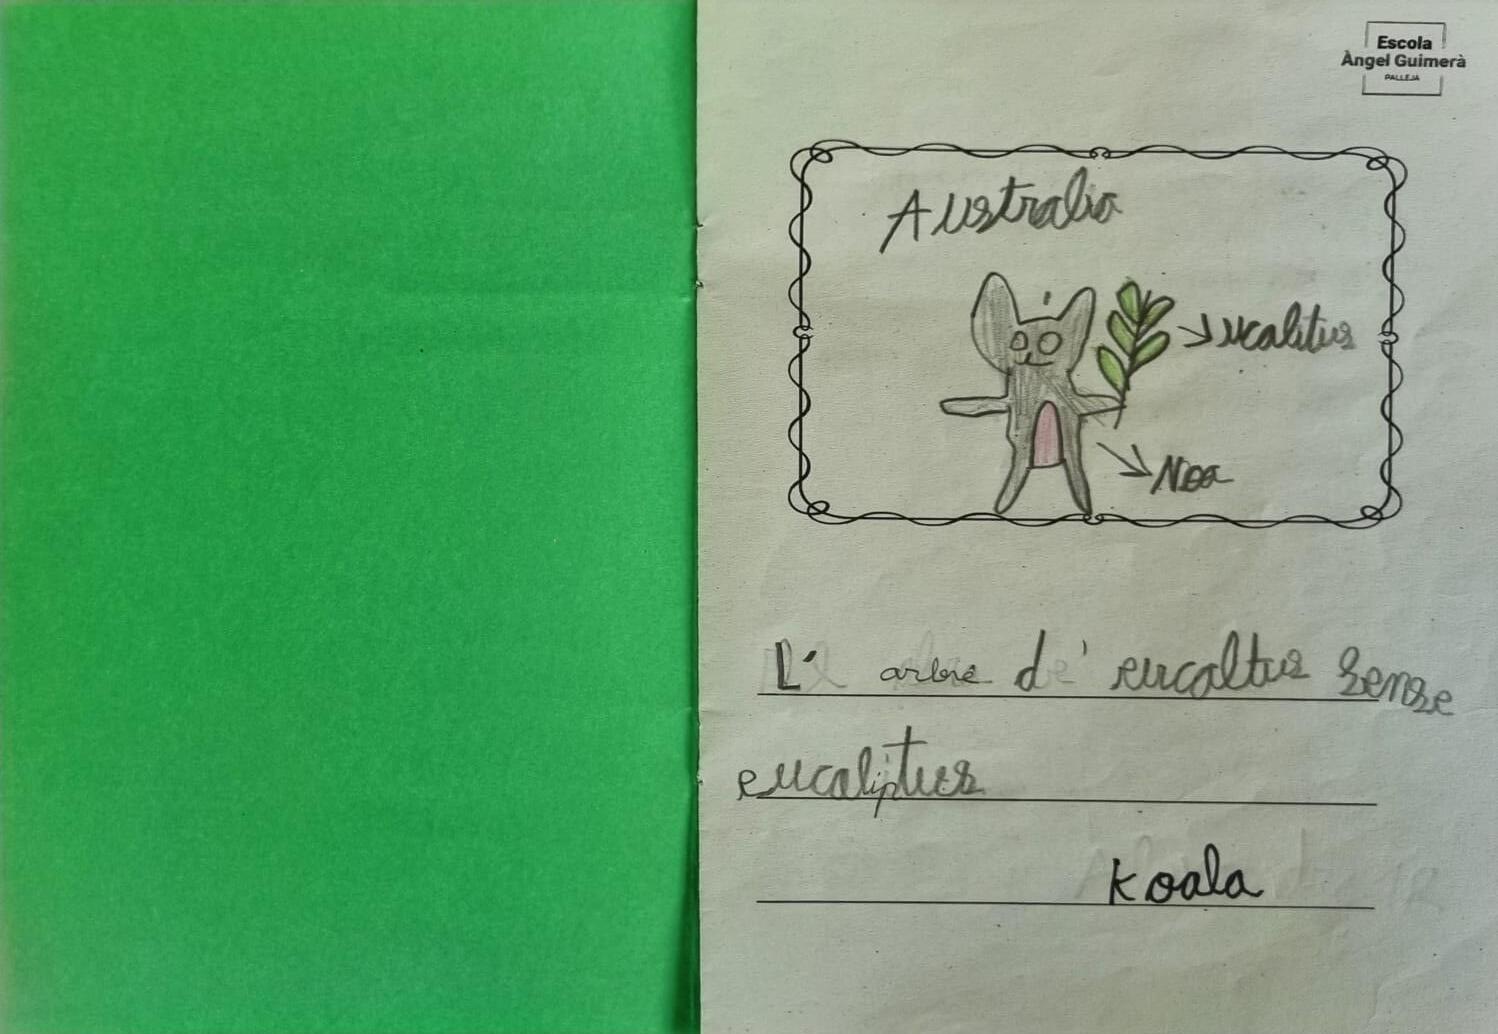 Escola
Àngel Guimerà
PALLEJÀ
Australia
ucalitus
Noa
L' arbre d' eucaltus sense
eucaliptus
Koala